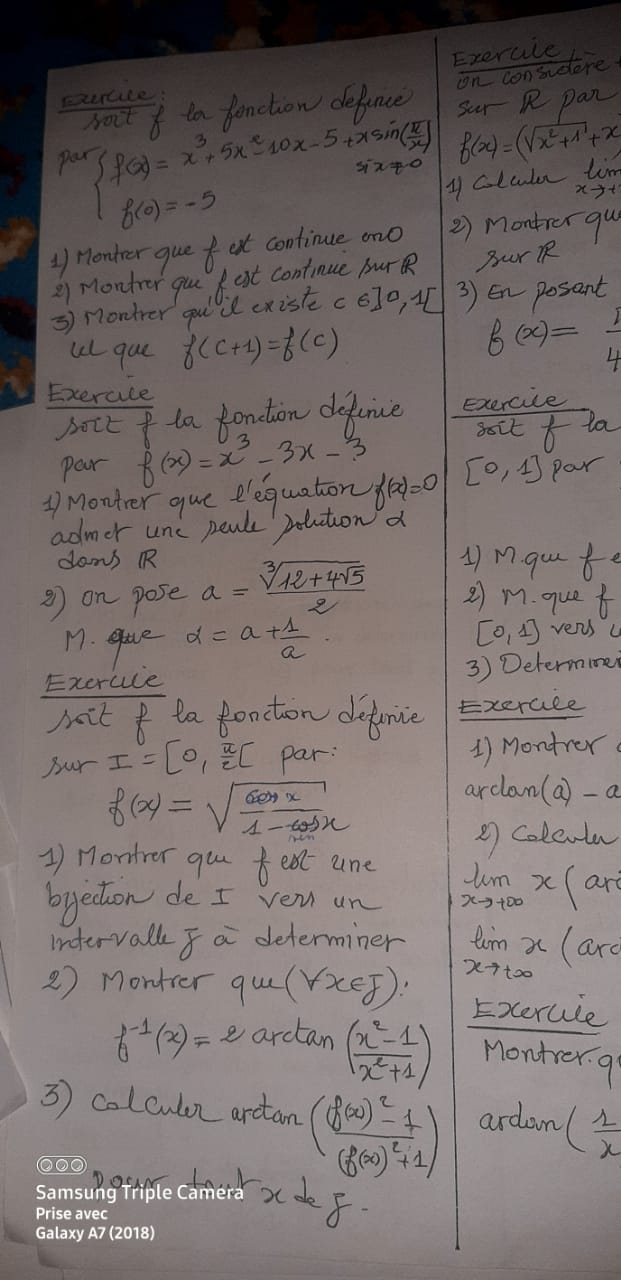 Exercice:
soit f la fonction définie
par { f(x) = x³ + 5x² - 10x - 5 + x sin(π/x)
si x ≠ 0
f(0) = -5
1) Montrer que f est continue en 0
2) Montrer que f est continue sur ℝ
3) Montrer qu'il existe c ∈ ]0, 1[
tel que f(c+1) = f(c)
Exercice
soit f la fonction définie
par f(x) = x³ - 3x - 3
1) Montrer que l'équation f(x) = 0
admet une seule solution α
dans ℝ
2) on pose a = ∛(12+4√5) / 2
M. que α = a + 1/a .
Exercice
soit f la fonction définie
sur I = [0, π/2[ par:
f(x) = √(cos x / (1 - sin x))
1) Montrer que f est une
bijection de I vers un
intervalle J à determiner
2) Montrer que (∀x∈J):
f⁻¹(x) = 2 arctan ((x²-1)/(x²+1))
3) Calculer arctan ((f(x)² - 1)/((f(x))² + 1))
pour tout x de J.
Exercice
on considère
sur ℝ par
f(x) = (√(x²+1) + x
1) Calculer lim
x→+
2) Montrer que
sur ℝ
3) En posant
f(x) =
4
Exercice
soit f la
[0, 1] par
1) M. que f e
2) M. que f
[0, 1] vers u
3) Determiner
Exercice
1) Montrer
arctan(a) - a
2) Calculer
lim x (arc
x→+∞
lim x (arc
x→+∞
Exercice
Montrer. q
arctan (1/x
Samsung Triple Camera
Prise avec
Galaxy A7 (2018)